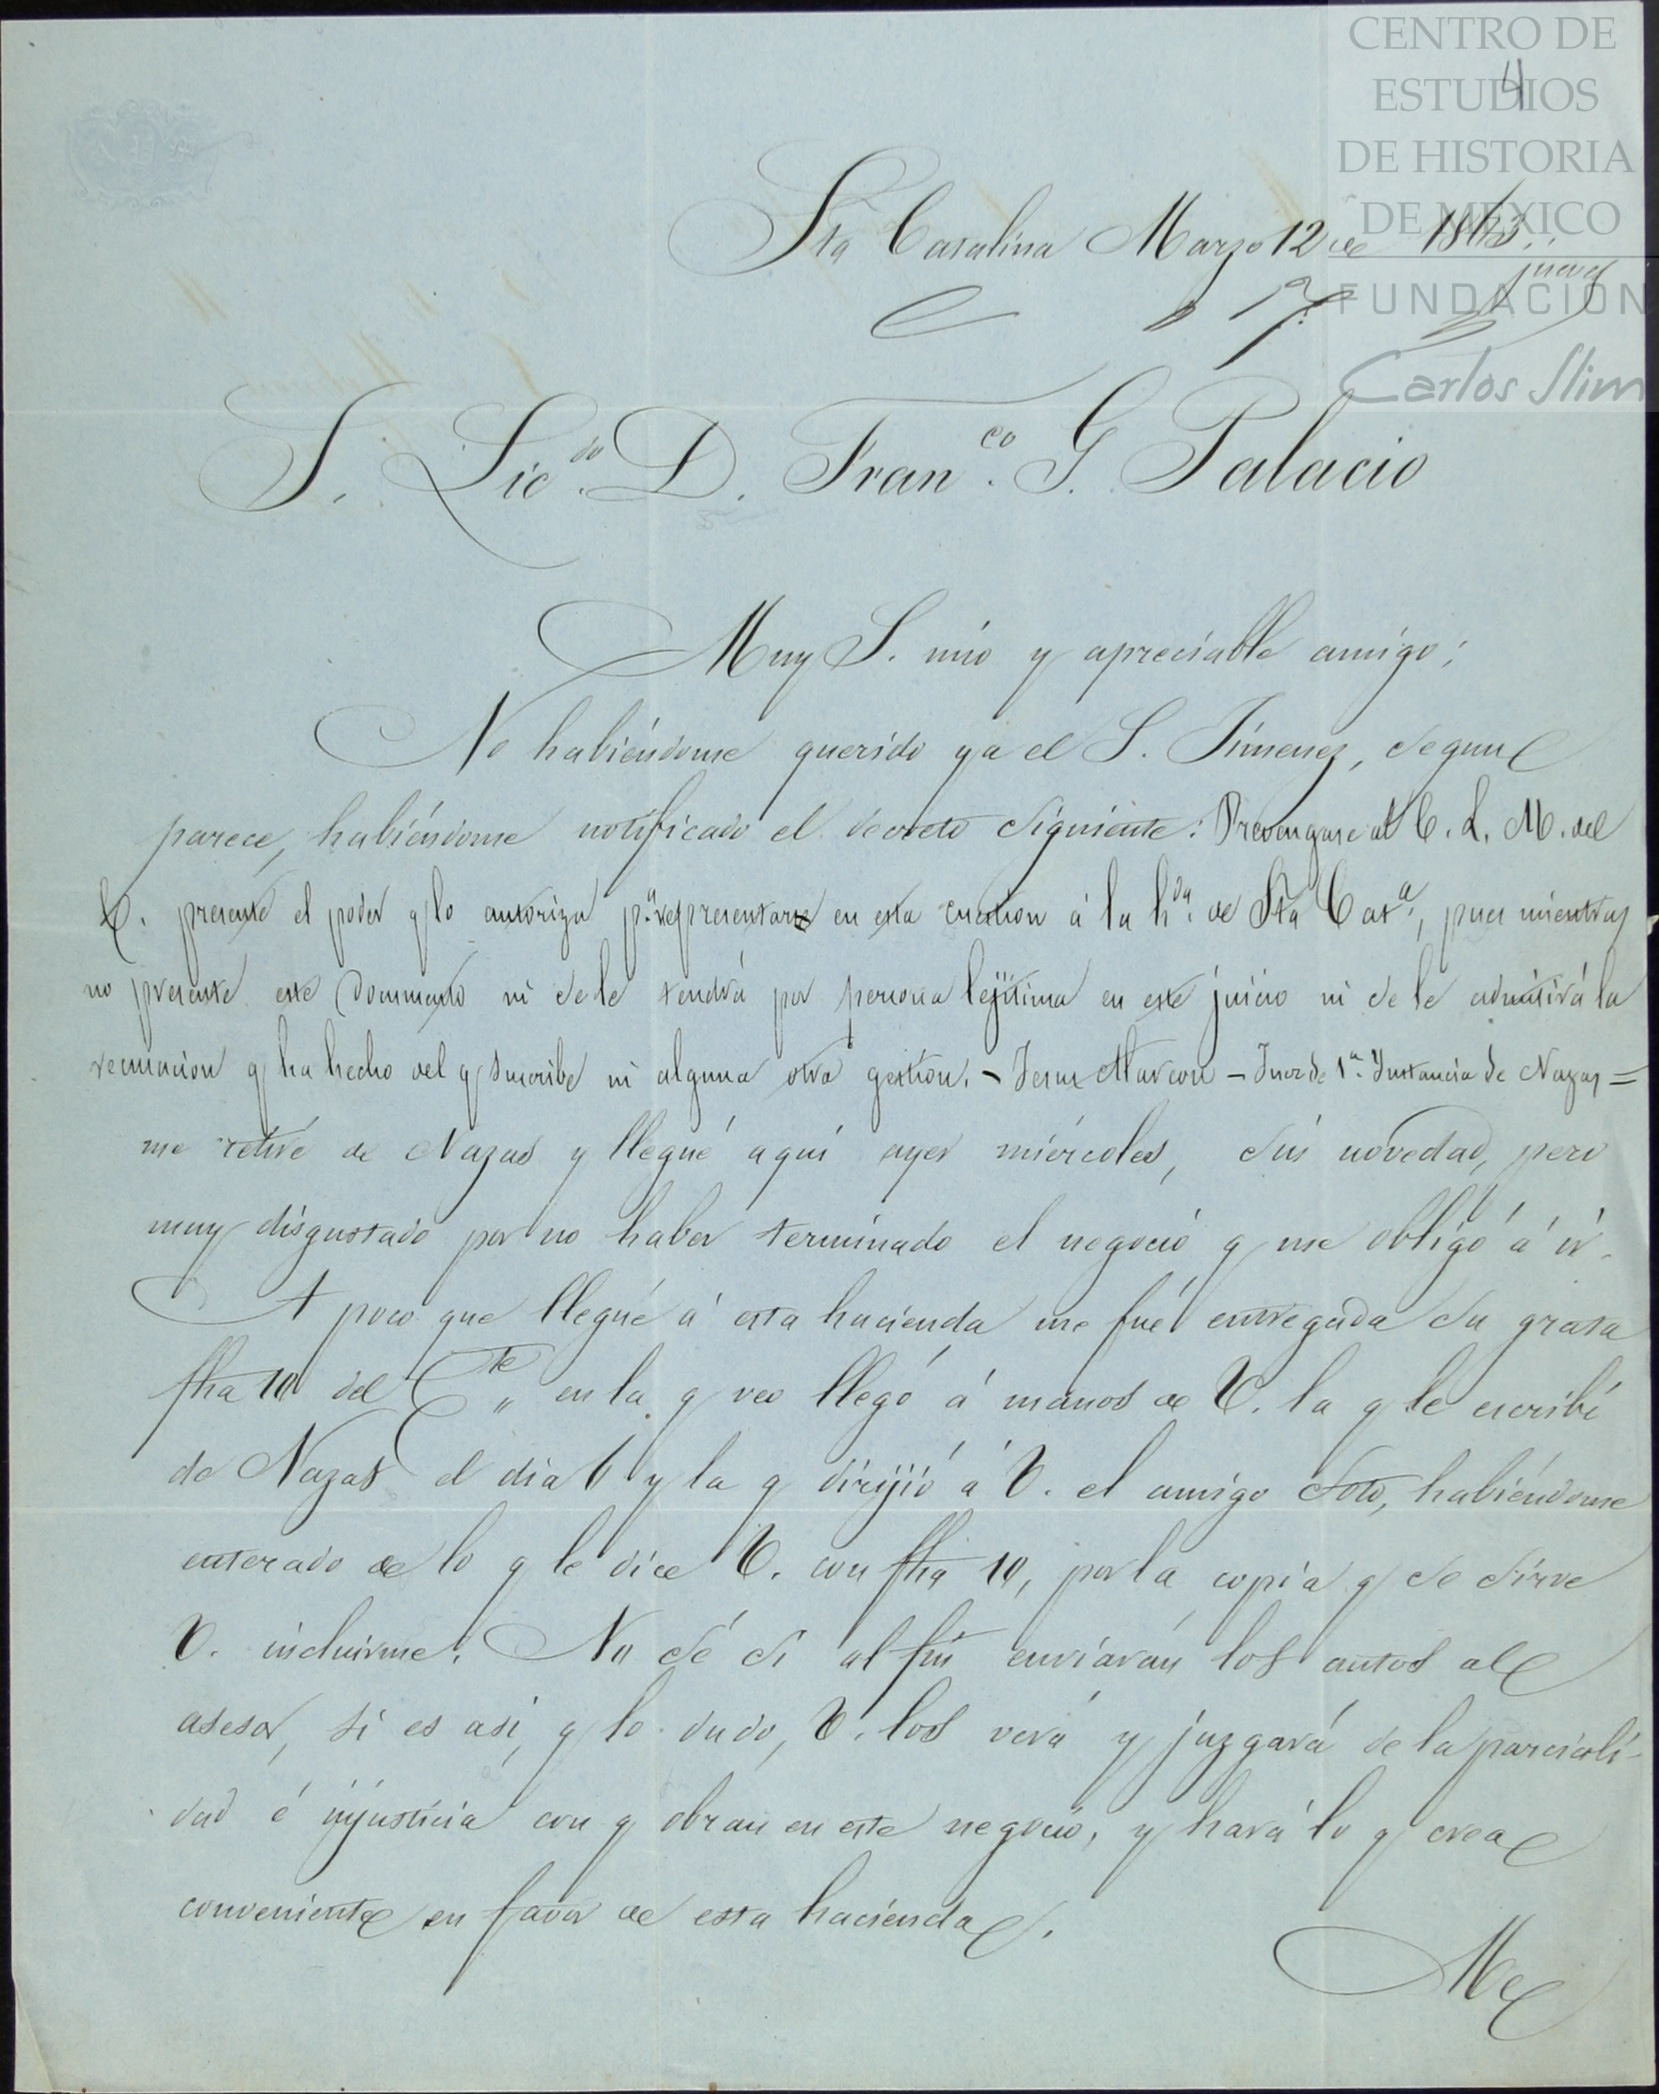 CENTRO DE
ESTUDIOS
DE HISTORIA
DE MEXICO
FUNDACION
Carlos Slim
4
Sta Catalina Marzo 12 de 1863..
jueves
S. Licdo. D. Franco. G. Palacio
Muy S. mio y apreciable amigo;
No habiéndome querido ya el S. Jimenez, segun
parece, habiéndome notificado el decreto siguiente: Prevengase al C. L. M. del
C. presente el poder q lo autoriza pa. representar en esta cuestion á la hda. de Sta Cata., pues mientras
no presente este documento ni se le tendrá por persona lejitima en este juicio ni se le admitirá la
recusacion q ha hecho del q suscribe ni alguna otra gestion. - Jesus Alarcon - Juez de 1a. Instancia de Nazas =
me retiré de Nazas y llegué aquí ayer miércoles, sin novedad, pero
muy disgustado por no haber terminado el negocio q me obligó á ir.
A poco que llegué á esta hacienda me fué entregada su grata
fha 10 del Cte „ en la q veo llegó á manos de V. la q le escribí
de Nazas el dia 6 y la q dirijió á V. el amigo Soto, habiéndome
enterado de lo q le dice V. con fha 10, por la copia q se sirve
V. incluirme. No sé si al fin enviarán los autos al
asesor, si es asi, q lo dudo, V. los verá y juzgará de la parciali-
dad é injusticia con q obran en este negocio, y hará lo q crea
conveniente en favor de esta hacienda.
Me